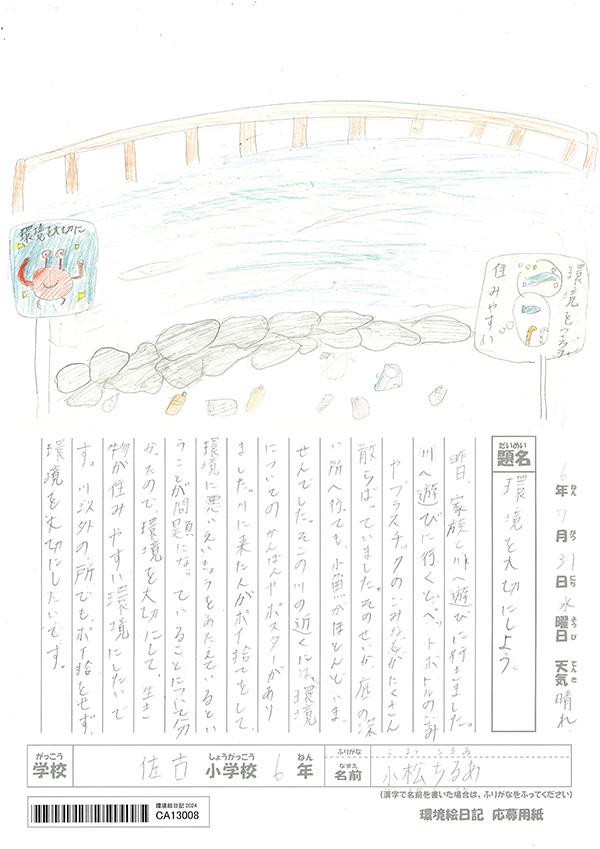 環境を大切に
環境をつくろう。
住みやすい
6年7月31日水曜日 天気晴れ
だいめい
題名
環境を大切にしよう。
昨日、家族と川へ遊びに行きました。
川へ遊びに行くと、ペットボトルのごみ
やプラスチックのごみなどがたくさん
散らばっていました。そのせいか、底の深
い所へ行っても、小魚がほとんどいま
せんでした。そこの川の近くには、環境
についてのかんばんやポスターがあり
ました。川に来た人がポイ捨てをして、
環境に悪いえいきょうをあたえているとい
うことが問題になっていることについて分
かったので、環境を大切にして、生き
物が住みやすい環境にしたいで
す。川以外の所でも、ポイ捨とせず、
環境を大切にしたいです。
がっこう
学校
佐古小学校 6年
ふりがな こまつ ちるあ
なまえ
名前 小松ちるあ
(漢字で名前を書いた場合は、ふりがなをふってください)
環境絵日記2024
CA13008
環境絵日記 応募用紙